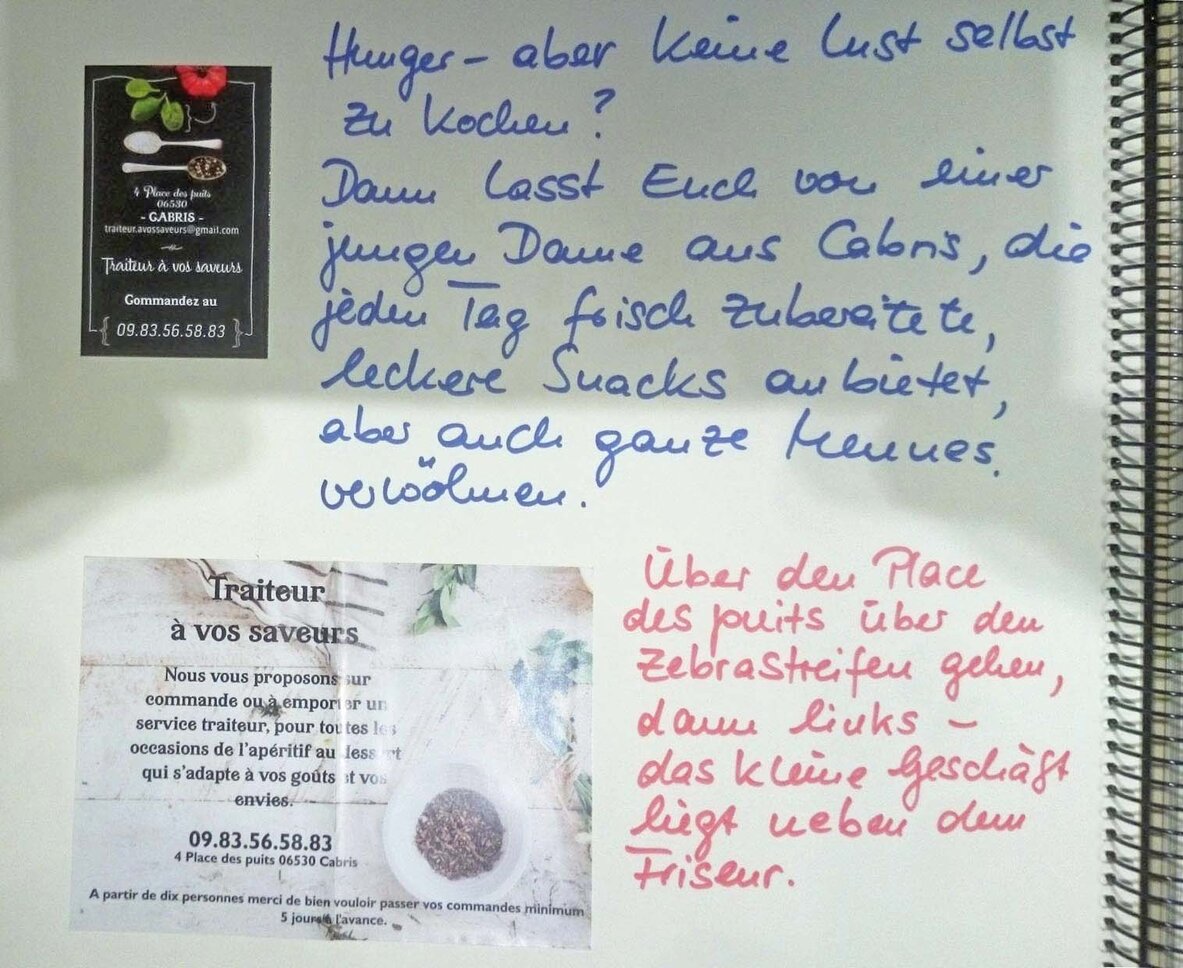 Hunger - aber keine Lust selbst
zu kochen?
Dann lasst Euch von einer
jungen Dame aus Cabris, die
jeden Tag frisch zubereitete,
leckere Snacks anbietet,
aber auch ganze Menues.
verwöhnen.
4 Place des puits
06530
- GABRIS -
traiteur.avossaveurs@gmail.com
Traiteur à vos saveurs
Gommandez au
09.83.56.58.83
Traiteur
à vos saveurs
Nous vous proposons sur
commande ou à emporter un
service traiteur, pour toutes les
occasions de l'apéritif au dessert
qui s'adapte à vos goûts et vos
envies.
09.83.56.58.83
4 Place des puits 06530 Cabris
A partir de dix personnes merci de bien vouloir passer vos commandes minimum
5 jours à l'avance.
Über den Place
des puits über den
Zebrastreifen gehen,
dann links -
das kleine Geschäft
liegt neben dem
Friseur.